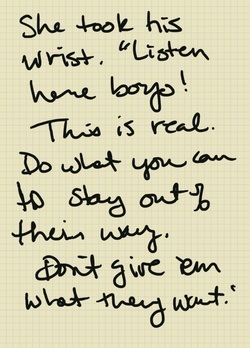 She took his
wrist. "Listen
here boyo!
This is real.
Do what you can
to stay out of
their way.
Don't give 'em
what they want."